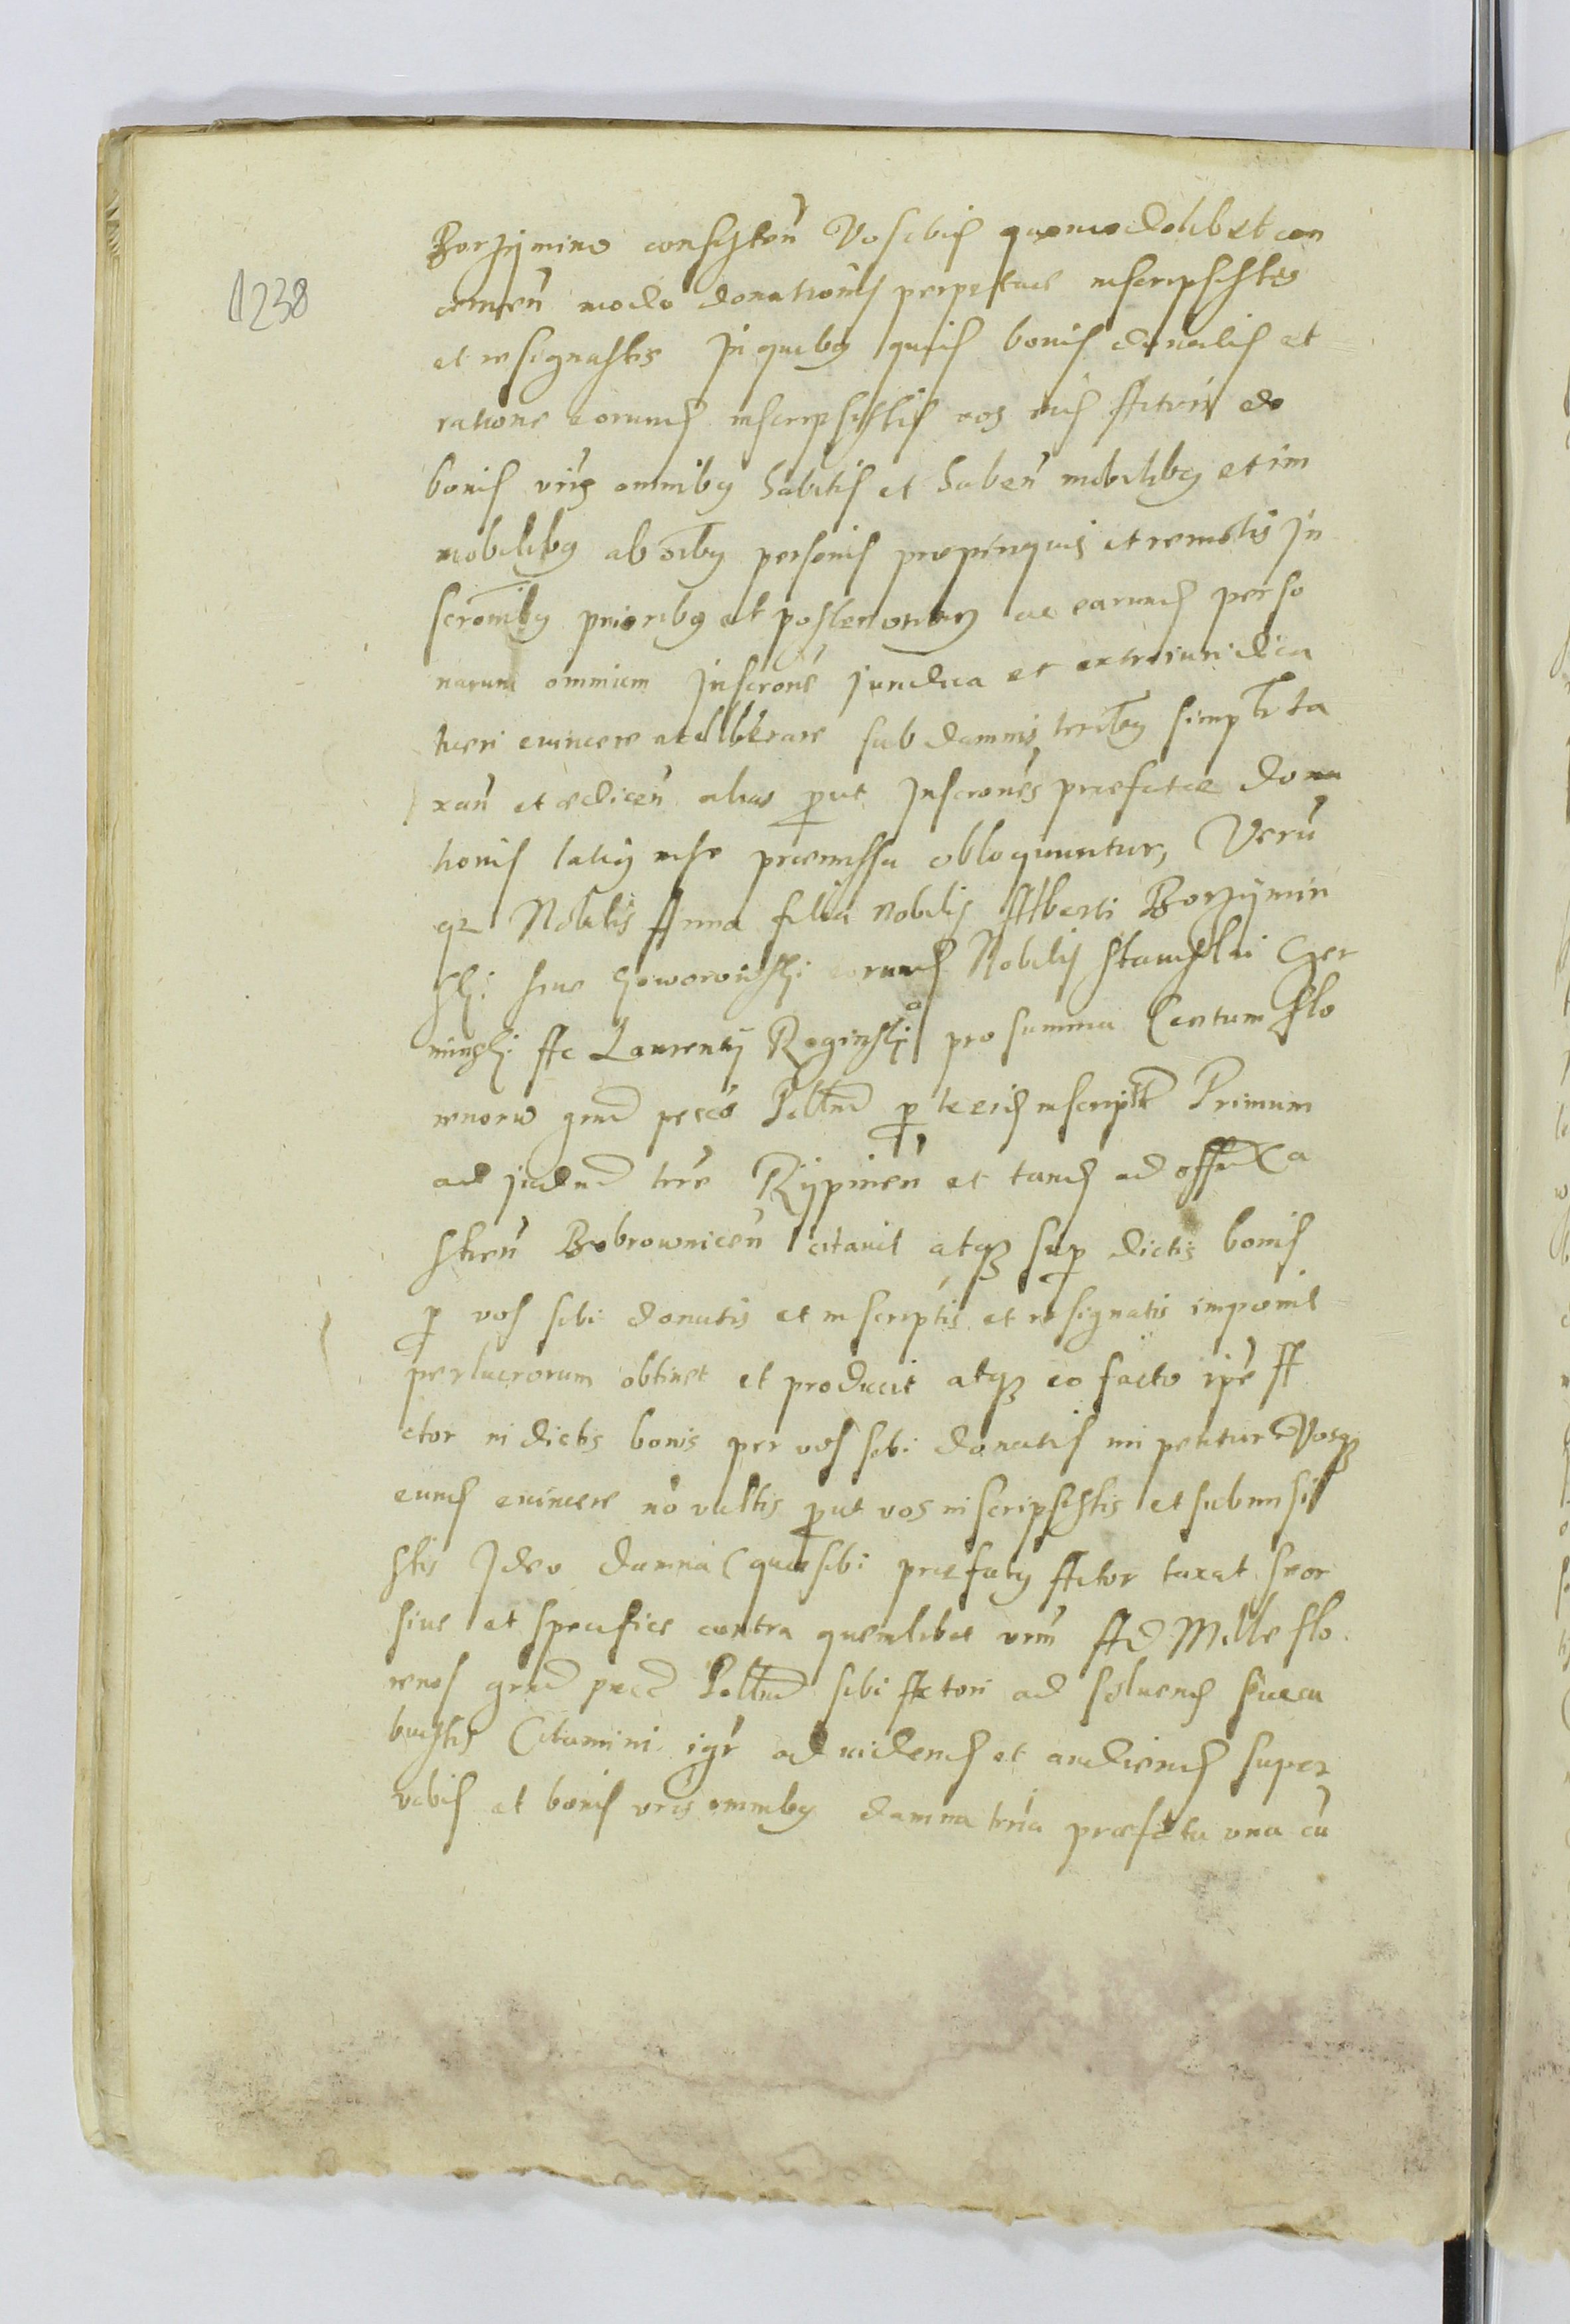 1238
Borzymino consisten̄ Vosobis quomodolibet con
cernen̄ modo donationis perpetuae inscripsistis
et resignastis In quibus quis bonis donatis et
ratione eorund inscripsistis eos eid Actori de
bonis vr̄is omnibus habitis et haben̄ mobilibus et im
mobilibus ab oībus personis propinquis et remotis In
scrōnibus prioribus et posterioribus ac earund perso
narum omnium Inscrōne juridica et extraiuridica
tueri evincere ac liberare sub damnis trībus simplr̄ ta
xan̄ et edicen̄ alias put Inscrōnes praefatae dona
tionis latius in se praemissa obloquuntur, Verū
qz Nobilis Anna filia nobilis Alberti Borzymin
ski sive Goworowski eorund Nobilis Stanislai Czer
minski Ac Laurentij Roginski a pro summa Centum flo
renorū grad pecco Poll̄nd p te eid inscript Primum
ad judnd trē Rypinen̄ et tand ad offm Ca
stren̄ Bobrownicen̄ citavit atqz sup dictis bonis
p vos sibi donatis et inscriptis et resignatis imponit
perlucrorum obtinet et producit atqz eo facto ipē A
ctor in dictis bonis per vos sibi donatis impetitur Vosqz
eund evincere nō vultis put vos inscripsistis et submisi
stis Ideo damna quae sibi praefatus Actor taxat seor
sive et specifice contra quemlibet vrm̄ Ad Mille flo
renos grad pecc Poll̄nd sibi Actori ad solvend succu
buistis Citamini igr̄ ad vidend et audiend super
vobis et bonis vris omnibus damna trīa praefata una cū